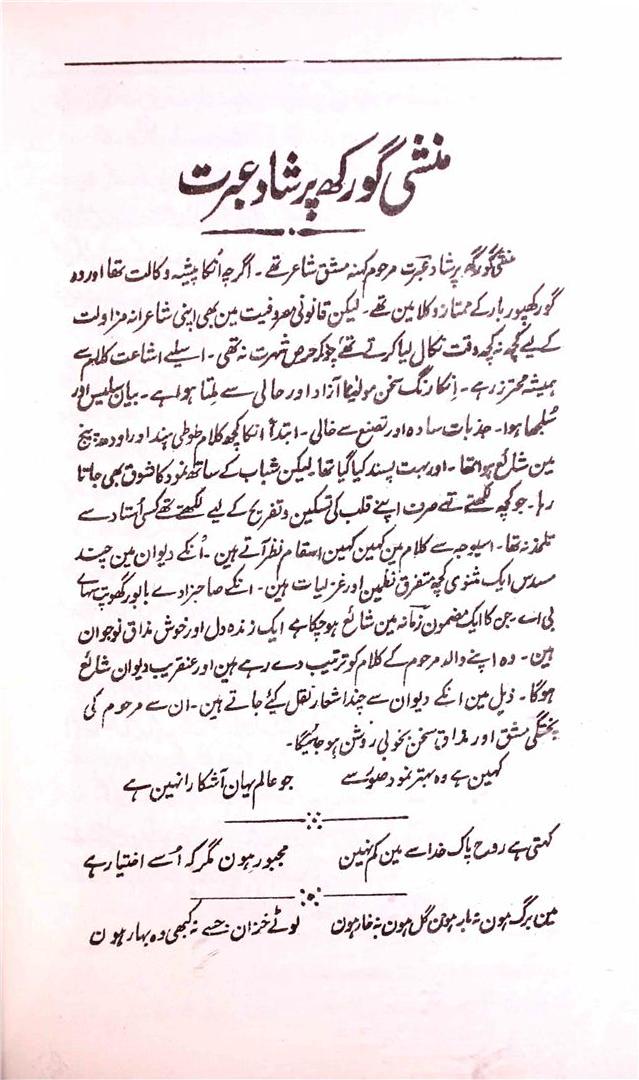 منشی گورکھ پرشاد عبرت
منشی گورکھ پرشاد عبرت مرحوم کہنہ مشق شاعر تھے۔ اگرچہ اُنکا پیشہ وکالت تھا اور وہ
گورکھپور بار کے ممتاز وکلا مین تھے۔ لیکن قانونی مصروفیت مین بھی اپنی شاعرانہ مزاولت
کے لیے کچھ نہ کچھ وقت نکال لیا کرتے تھے چونکہ حرص شہرت نہ تھی۔ اسیلیے اشاعت کلام سے
ہمیشہ محترز رہے۔ اِنکا رنگ سخن مولینا آزاد اور حالی سے ملتا ہوا ہے۔ بیان سلیس اور
سُلجھا ہوا۔ جذبات سادہ اور تصنع سے خالی۔ ابتداً انکا کچھ کلام طوطی ہند اور اودھ پنچ
مین شائع ہوا تھا۔ اور بہت پسند کیا گیا تھا۔ لیکن شباب کے ساتھ نمود کا شوق بھی جاتا
رہا۔ جو کچھ لکھتے تھے صرف اپنے قلب کی تسکین و تفریح کے لیے لکھتے تھے کسی اُستاد سے
تلمذ نہ تھا۔ اسیوجہ سے کلام مین کہین کہین اسقام نظر آتے ہین۔ اُنکے دیوان مین چند
مسدس ایک مثنوی کچھ متفرق نظمین اور غزلیات ہین۔ انکے صاحبزادے بابو رگھوپت سہائے
بی اے۔ جن کا ایک مضمون زمانہ مین شائع ہوچکا ہے ایک زندہ دل اور خوش مذاق نوجوان
ہین۔ وہ اپنے والد مرحوم کے کلام کو ترتیب دے رہے ہین اور عنقریب دیوان شائع
ہوگا۔ ذیل مین انکے دیوان سے چند اشعار نقل کیے جاتے ہین۔ ان سے مرحوم کی
پختگی مشق اور مذاق سخن بخوبی روشن ہو جائیگا۔
کہین ہے وہ بہتر نمود سے جو عالم یہان آشکارا نہین ہے
کہتی ہے روح پاک خدا سے مین کم نہین مجبور ہون مگر کہ اُسے اختیار ہے
مین برگ ہون نہ بار ہون گل ہون نہ خار ہون لوٹے خزان جسے نہ کبھی وہ بہار ہون